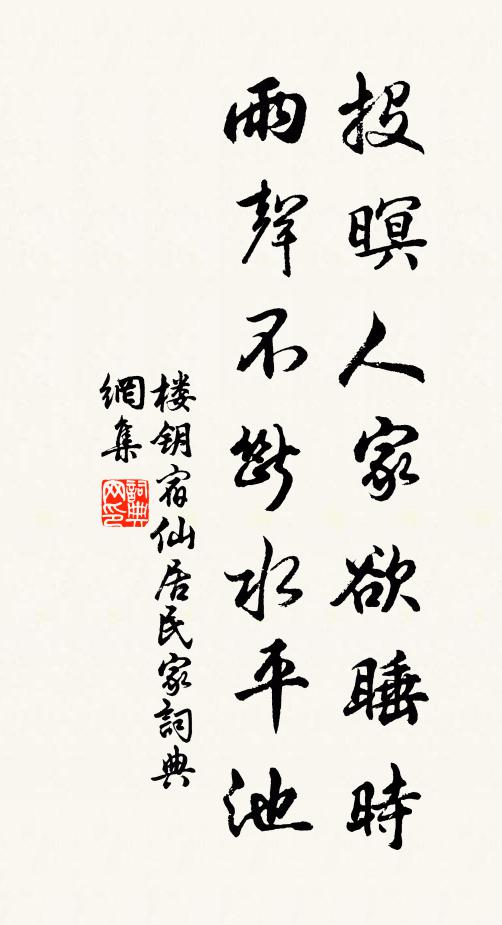 投暝人家欲睡時
雨聲不斷水平池
楼钥宿仙居民家詞典
網集
詞典网印